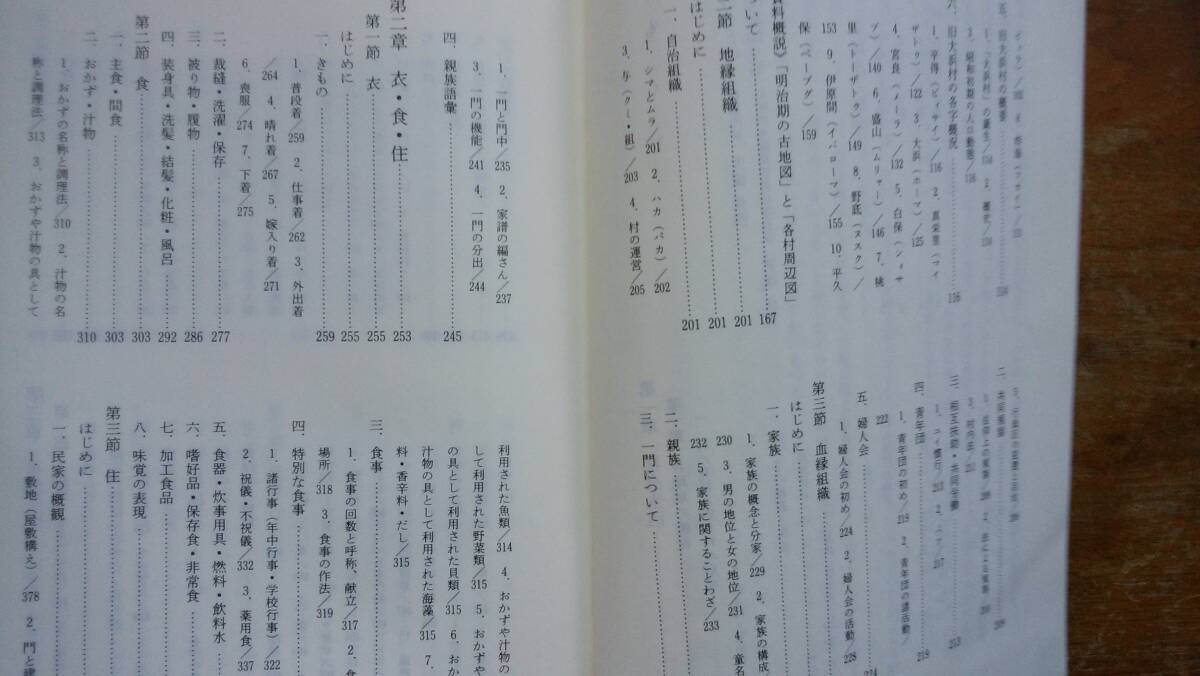 五、旧大浜村の概要
1、「大浜村」の誕生
3、昭和初期の人口動態
六、旧大浜村の各字概況
1、平得(ピィサイ)/116 2、真栄里(マイ
ザトゥ)/122 3、大浜(ホーマ)/125
4、宮良(メーラ)/132 5、白保(シィサ
ブ)/140 6、盛山(ムリャー)/146 7、桃
里(トーザトゥ)/149 8、野底(ヌスク)/
153 9、伊原間(イバローマ)/155 10、平久
保(ペーブグ)/159
資料概説》「明治期の古地図」と「各村周辺図」
ついて 167
二節 地縁組織 201
はじめに 201
一、自治組織 201
1、シマとムラ/201 2、ハカ(バカ)/202
3、与(クミ・組)/203 4、村の運営/205
二、共同祭祀
三、相互扶助・共同労働
四、青年団
1、青年団の初め/219 2、青年団の諸活動/
222
五、婦人会
1、婦人会の初め/224 2、婦人会の活動/228
第三節 血縁組織
はじめに
一、家族
1、家族の概念と分家/229 2、家族の構成
230 3、男の地位と女の地位/231 4、童名
232 5、家族に関することわざ/233
二、親族
三、一門について
1、一門と門中/235 2、家譜の編さん/237
3、一門の機能/241 4、一門の分出/244
四、親族語彙 245
第二章 衣・食・住 253
第一節 衣 255
はじめに 255
一、きもの 259
1、普段着/259 2、仕事着/262 3、外出着
/264 4、晴れ着/267 5、嫁入り着/271
6、喪服/274 7、下着/275
二、裁縫・洗濯・保存 277
三、被り物・履物 286
四、装身具・洗髪・結髪・化粧・風呂 292
第二節 食 303
一、主食・間食 303
二、おかず・汁物 310
1、おかずの名称と調理法/310 2、汁物の名
称と調理法/313 3、おかずや汁物の具として
利用された魚類/314 4、おかずや汁物の
して利用された野菜類/315 5、おかずや
の具として利用された貝類/315 6、おか
汁物の具として利用された海藻/315 7、
料・香辛料・だし/315
三、食事
1、食事の回数と呼称、献立/317 2、食
場所/318 3、食事の作法/319
四、特別な食事
1、諸行事(年中行事・学校行事)/322
2、祝儀・不祝儀/332 3、薬用食/337
五、食器・炊事用具・燃料・飲料水
六、嗜好品・保存食・非常食
七、加工食品
八、味覚の表現
第三節 住
はじめに
一、民家の概観
1、敷地(屋敷構え)/378 2、門と建